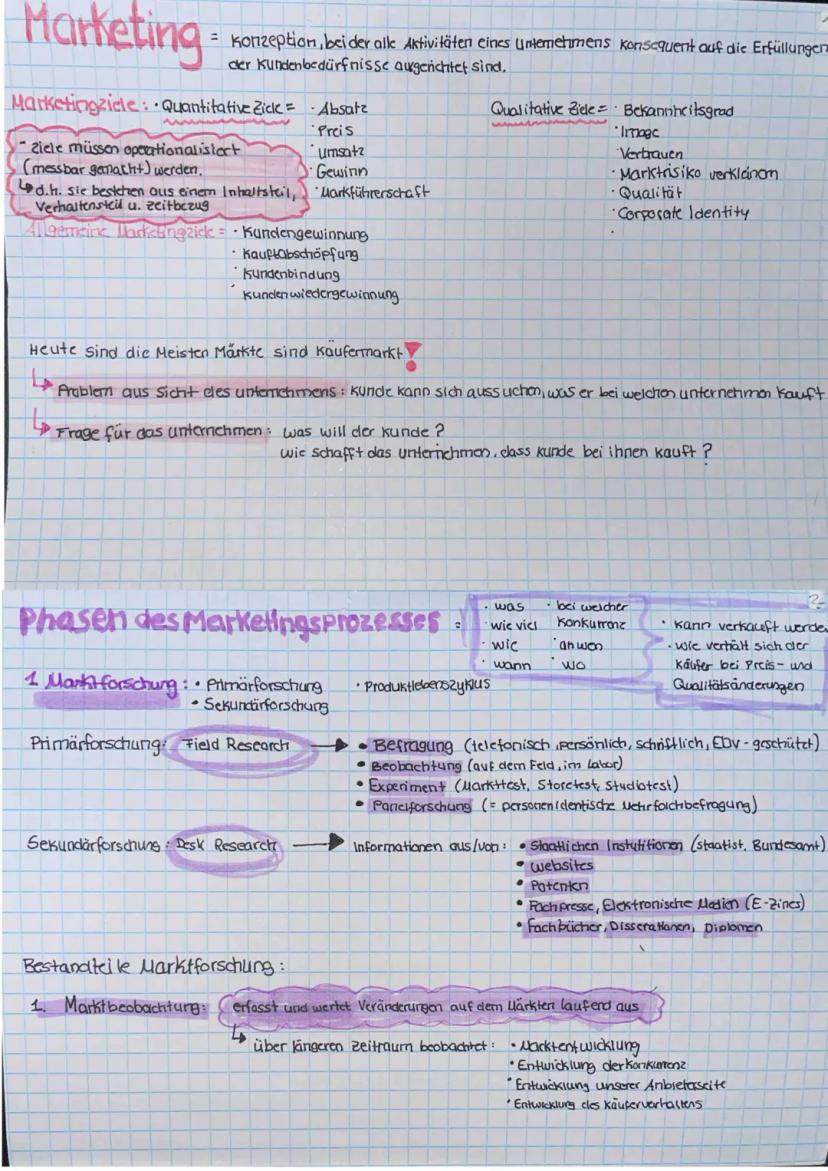 Marketing = Konzeption, bei der alle Aktivitäten eines Unternehmens konsequent auf die Erfüllungen
der Kundenbedürfnisse ausgerichtet sind.
Marketingziele: · Quantitative Ziele = · Absatz
· Preis
· Umsatz
· Gewinn
· Markführerschaft
Qualitative Ziele = · Bekannheitsgrad
· Image
· Vertrauen
· Marktrisiko verkleinern
· Qualität
· Corporate Identity
·
- Ziele müssen operationalisiert
(messbar gemacht) werden.
↳ d.h. sie bestehen aus einem Inhaltsteil,
Verhaltensteil u. Zeitbezug
Allgemeine Marketingziele = · Kundengewinnung
· Kauftabschöpfung
· Kundenbindung
· Kundenwiedergewinnung
Heute sind die Meisten Märkte sind Käufermarkt!
↳ Problem aus Sicht des unternehmens: Kunde kann sich aussuchen, was er bei welchen unternehmen kauft
↳ Frage für das unternehmen: was will der Kunde?
wie schafft das unternehmen, dass Kunde bei ihnen kauft?
2
Phasen des Marketingsprozesses =
· was · bei welcher
· wie viel Konkurrenz
· wie · an wen
· wann · wo
· kann verkauft werde
· wie verhält sich der
Käufer bei Preis- und
Qualitätsänderungen
1. Marktforschung: · Primärforschung · Produktlebenszyklus
· Sekundärforschung
Primärforschung: Field Research → • Befragung (telefonisch, persönlich, schriftlich, EDV-geschützt)
• Beobachtung (auf dem Feld, im Labor)
• Experiment (Markttest, Storetest, Studiotest)
• Panelforschung (= personenidentische Mehrfachbefragung)
Sekundärforschung: Desk Research → Informationen aus/von: • Staatlichen Instutitionen (staatist. Bundesamt)
• Websites
• Patenten
• Fachpresse, Elektronische Medien (E-Zines)
• Fachbücher, Disserationen, Diplomen
Bestandteile Marktforschung:
1. Marktbeobachtung: erfasst und wertet Veränderungen auf dem Märkten laufend aus
↳ über längeren Zeitraum beobachtet: • Marktentwicklung
• Entwicklung der Konkurrenz
• Entwicklung unserer Anbieterseite
• Entwicklung des Käuferverhaltens